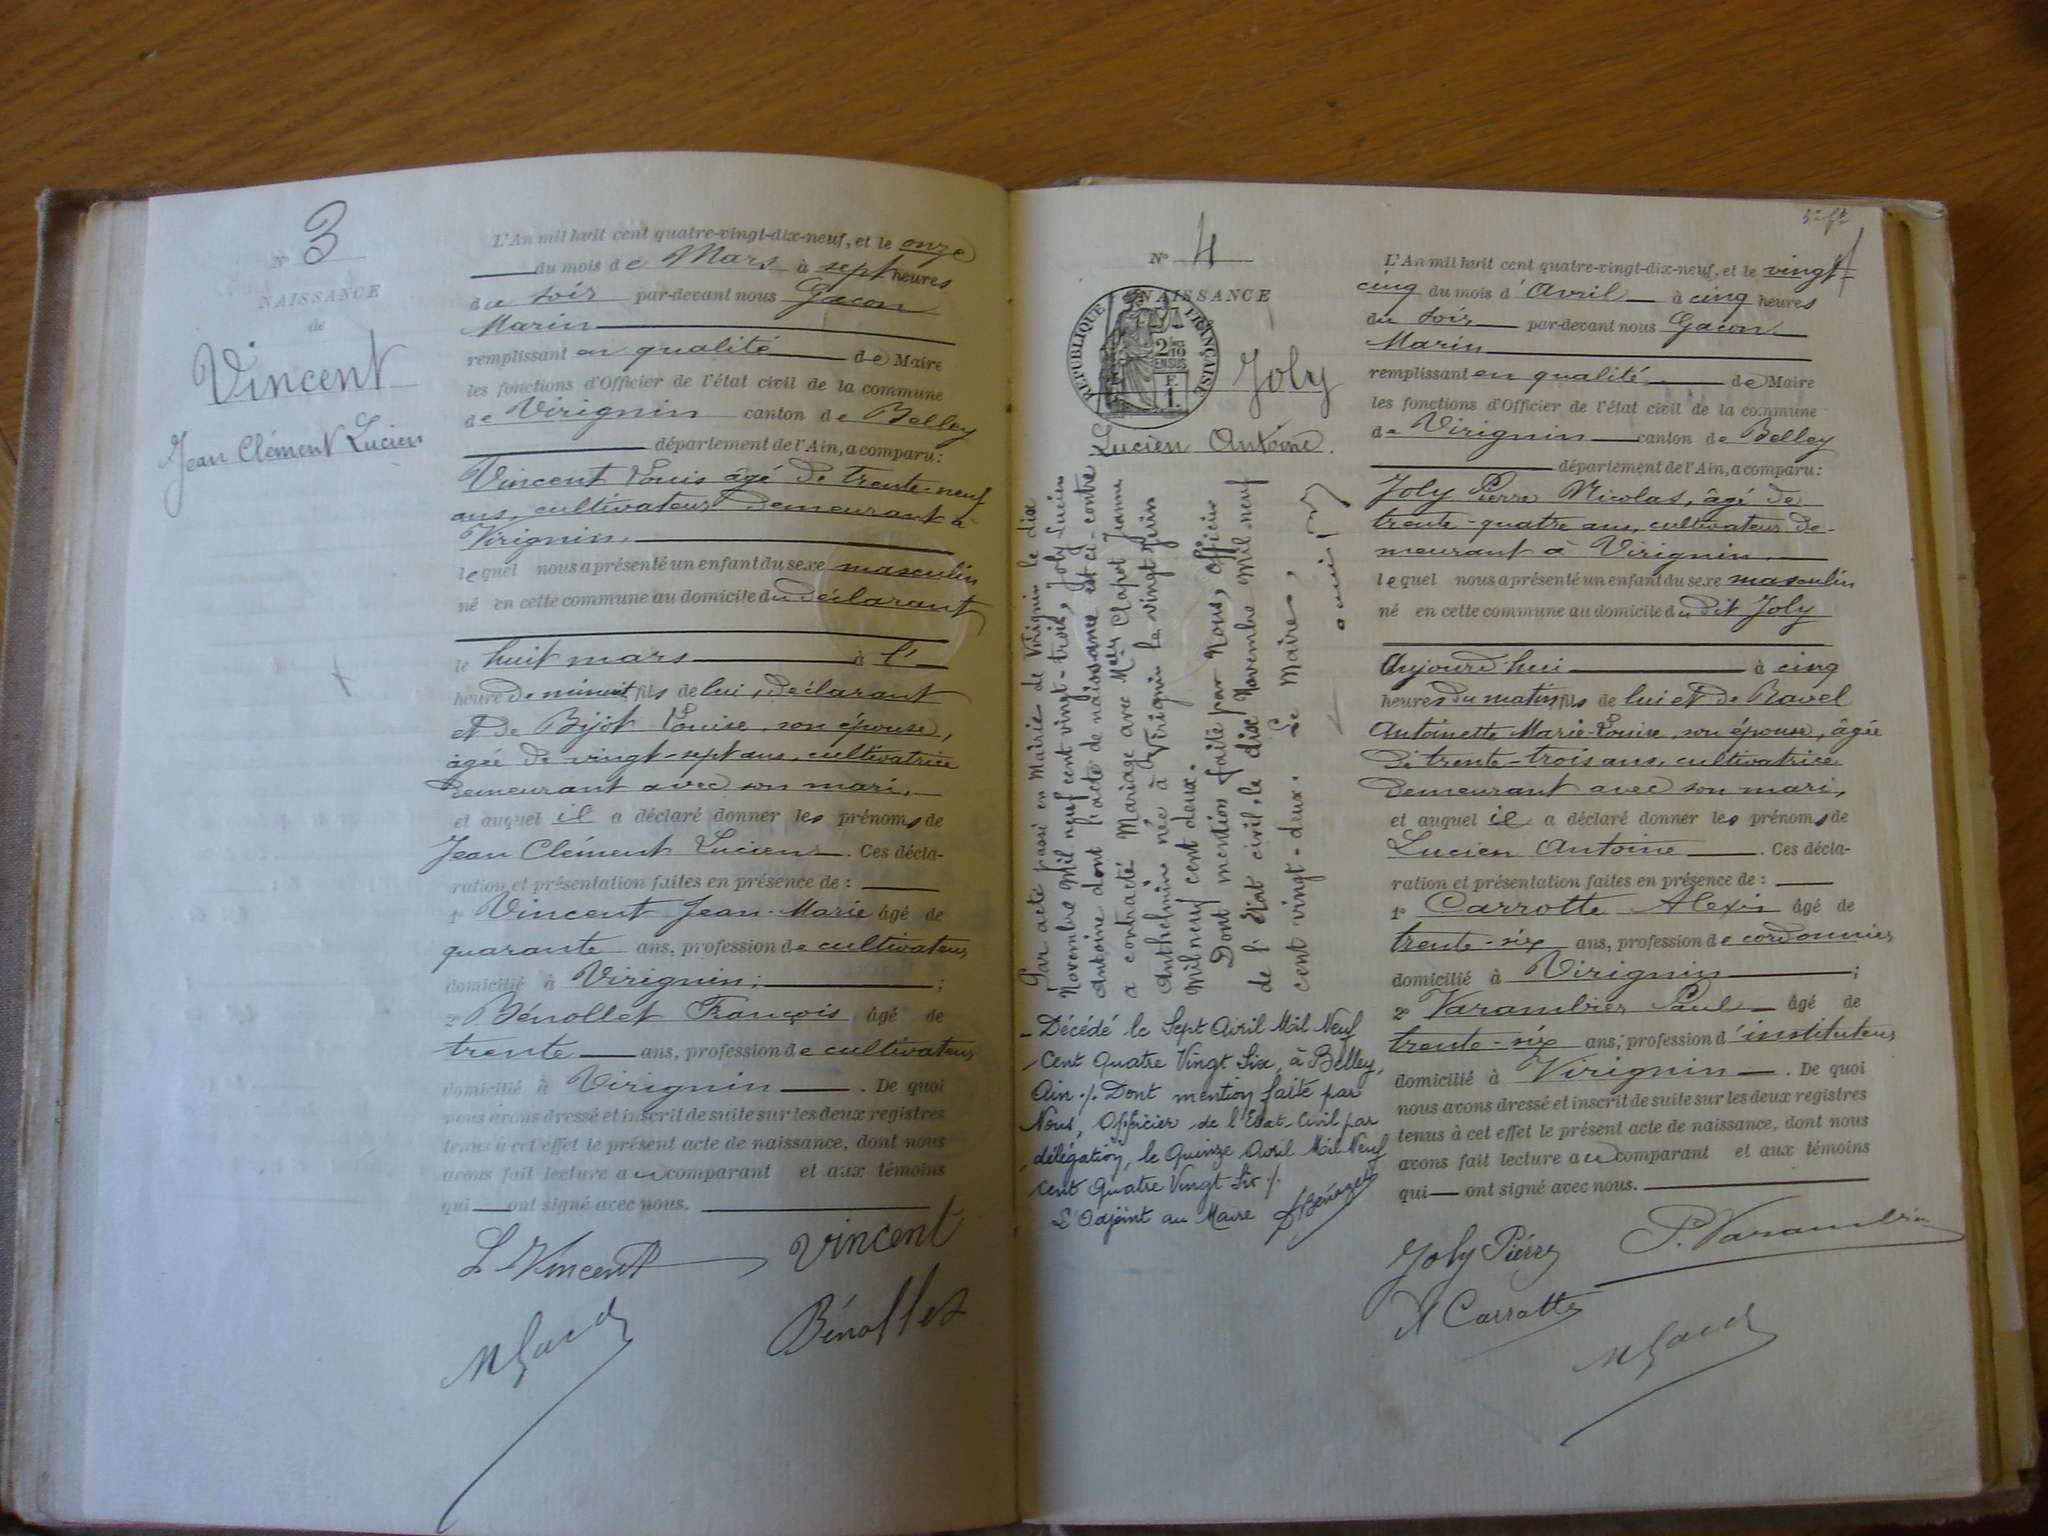 Nº 3
NAISSANCE
de
Vincent
Jean Clément Lucien
L'An mil huit cent quatre-vingt-dix-neuf, et le onze
du mois de Mars à sept heures
du soir par-devant nous Gacon
Marin
remplissant en qualité de Maire
les fonctions d'Officier de l'état civil de la commune
de Virignin canton de Belley
département de l'Ain, a comparu:
Vincent Louis âgé de trente-neuf
ans, cultivateur demeurant à
Virignin,
lequel nous a présenté un enfant du sexe masculin
né en cette commune au domicile du déclarant
le huit mars à l'
heure de minuit fils de lui, déclarant
et de Bijot Louise, son épouse,
âgée de vingt-sept ans, cultivatrice
demeurant avec son mari,
et auquel il a déclaré donner les prénoms de
Jean Clément Lucien. Ces décla-
ration et présentation faites en présence de :
1º Vincent Jean-Marie âgé de
quarante ans, profession de cultivateur,
domicilié à Virignin; ;
2º Bénollet François âgé de
trente ans, profession de cultivateur,
domicilié à Virignin. De quoi
nous avons dressé et inscrit de suite sur les deux registres
tenus à cet effet le présent acte de naissance, dont nous
avons fait lecture au comparant et aux témoins
qui ont signé avec nous.
L Vincent Vincent
Bénollet
Nº 4
NAISSANCE
RÉPUBLIQUE FRANÇAISE
Joly
Lucien Antoine.
Par acte passé en Mairie de Virignin le dix
Novembre Mil neuf cent vingt-trois, Joly Lucien
Antoine dont l'acte de naissance est ci-contre
a contracté Mariage avec Melle Clapot Jeanne
Anthelmine née à Virignin le vingt Juin
Mil neuf cent deux.
Dont mention faite par Nous, officier
de l'état civil, le dix Novembre Mil neuf
cent vingt-deux. Le Maire,
- Décédé le Sept Avril Mil Neuf
Cent Quatre Vingt Six, à Belley,
Ain ./. Dont mention faite par
Nous, Officier de l'Etat-Civil par
délégation, le Quinze Avril Mil Neuf
Cent Quatre Vingt Six ./.
L'Adjoint au Maire
L'An mil huit cent quatre-vingt-dix-neuf, et le vingt-
cinq du mois d'Avril à cinq heures
du soir par-devant nous Gacon
Marin
remplissant en qualité de Maire
les fonctions d'Officier de l'état civil de la commune
de Virignin canton de Belley
département de l'Ain, a comparu:
Joly Pierre Nicolas, âgé de
trente-quatre ans, cultivateur de-
meurant à Virignin
lequel nous a présenté un enfant du sexe masculin
né en cette commune au domicile dudit Joly
Aujourd'hui à cinq
heures du matin fils de lui et de Ravel
Antoinette Marie-Louise, son épouse, âgée
de trente-trois ans, cultivatrice
demeurant avec son mari,
et auquel il a déclaré donner les prénoms de
Lucien Antoine. Ces décla-
ration et présentation faites en présence de :
1º Carrotte Alexis âgé de
trente-six ans, profession de cordonnier,
domicilié à Virignin ;
2º Varambier Paul âgé de
trente-six ans, profession d'instituteur,
domicilié à Virignin. De quoi
nous avons dressé et inscrit de suite sur les deux registres
tenus à cet effet le présent acte de naissance, dont nous
avons fait lecture au comparant et aux témoins
qui ont signé avec nous.
Joly Pierre P. Varambier
A Carrotte